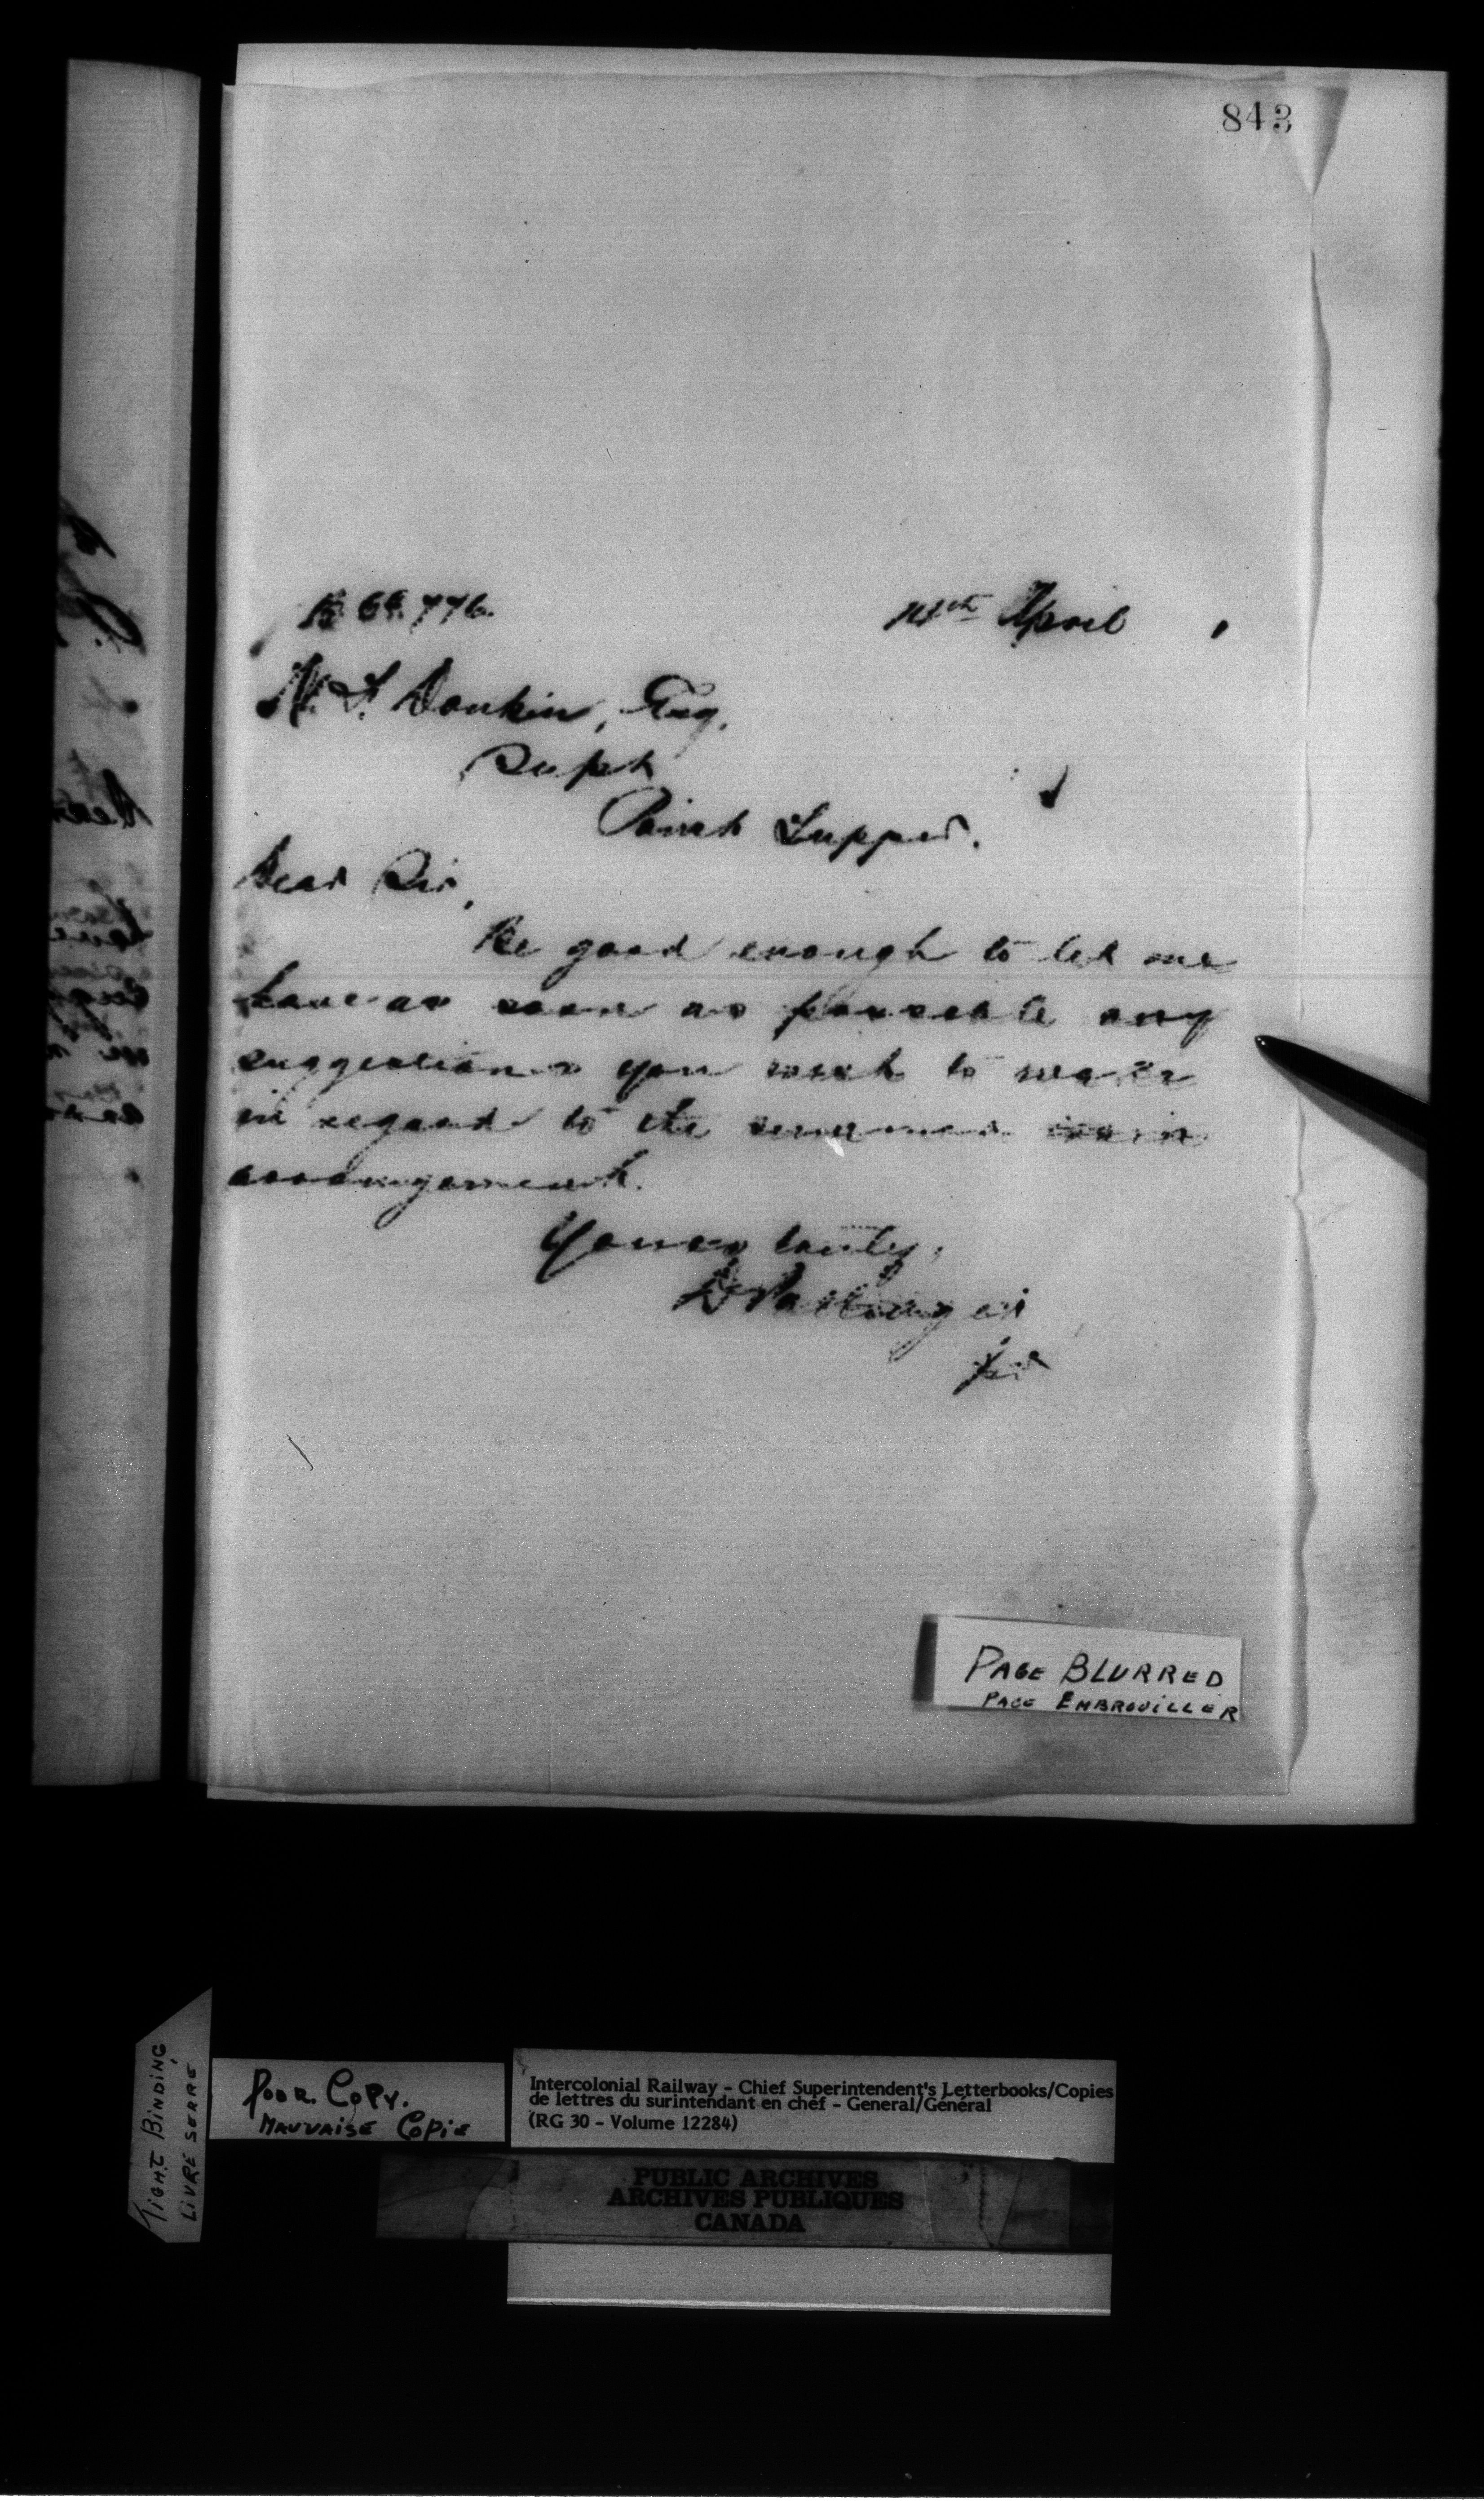 843
14th April
N. S. Donkin, Esq.
Supt
Point Tupper.
Dear Sir,
Be good enough to let me
have as soon as possible any
suggestions you wish to make
in regard to the summer train
arrangement.
Yours truly,
D Pottinger
PAGE BLURRED
PAGE EMBROUILLER
TIGHT BINDING
LIVRE SERRE
POOR COPY.
MAUVAISE COPIE
Intercolonial Railway - Chief Superintendent's Letterbooks/Copies
de lettres du surintendant en chef - General/Général
(RG 30 - Volume 12284)
PUBLIC ARCHIVES
ARCHIVES PUBLIQUES
CANADA